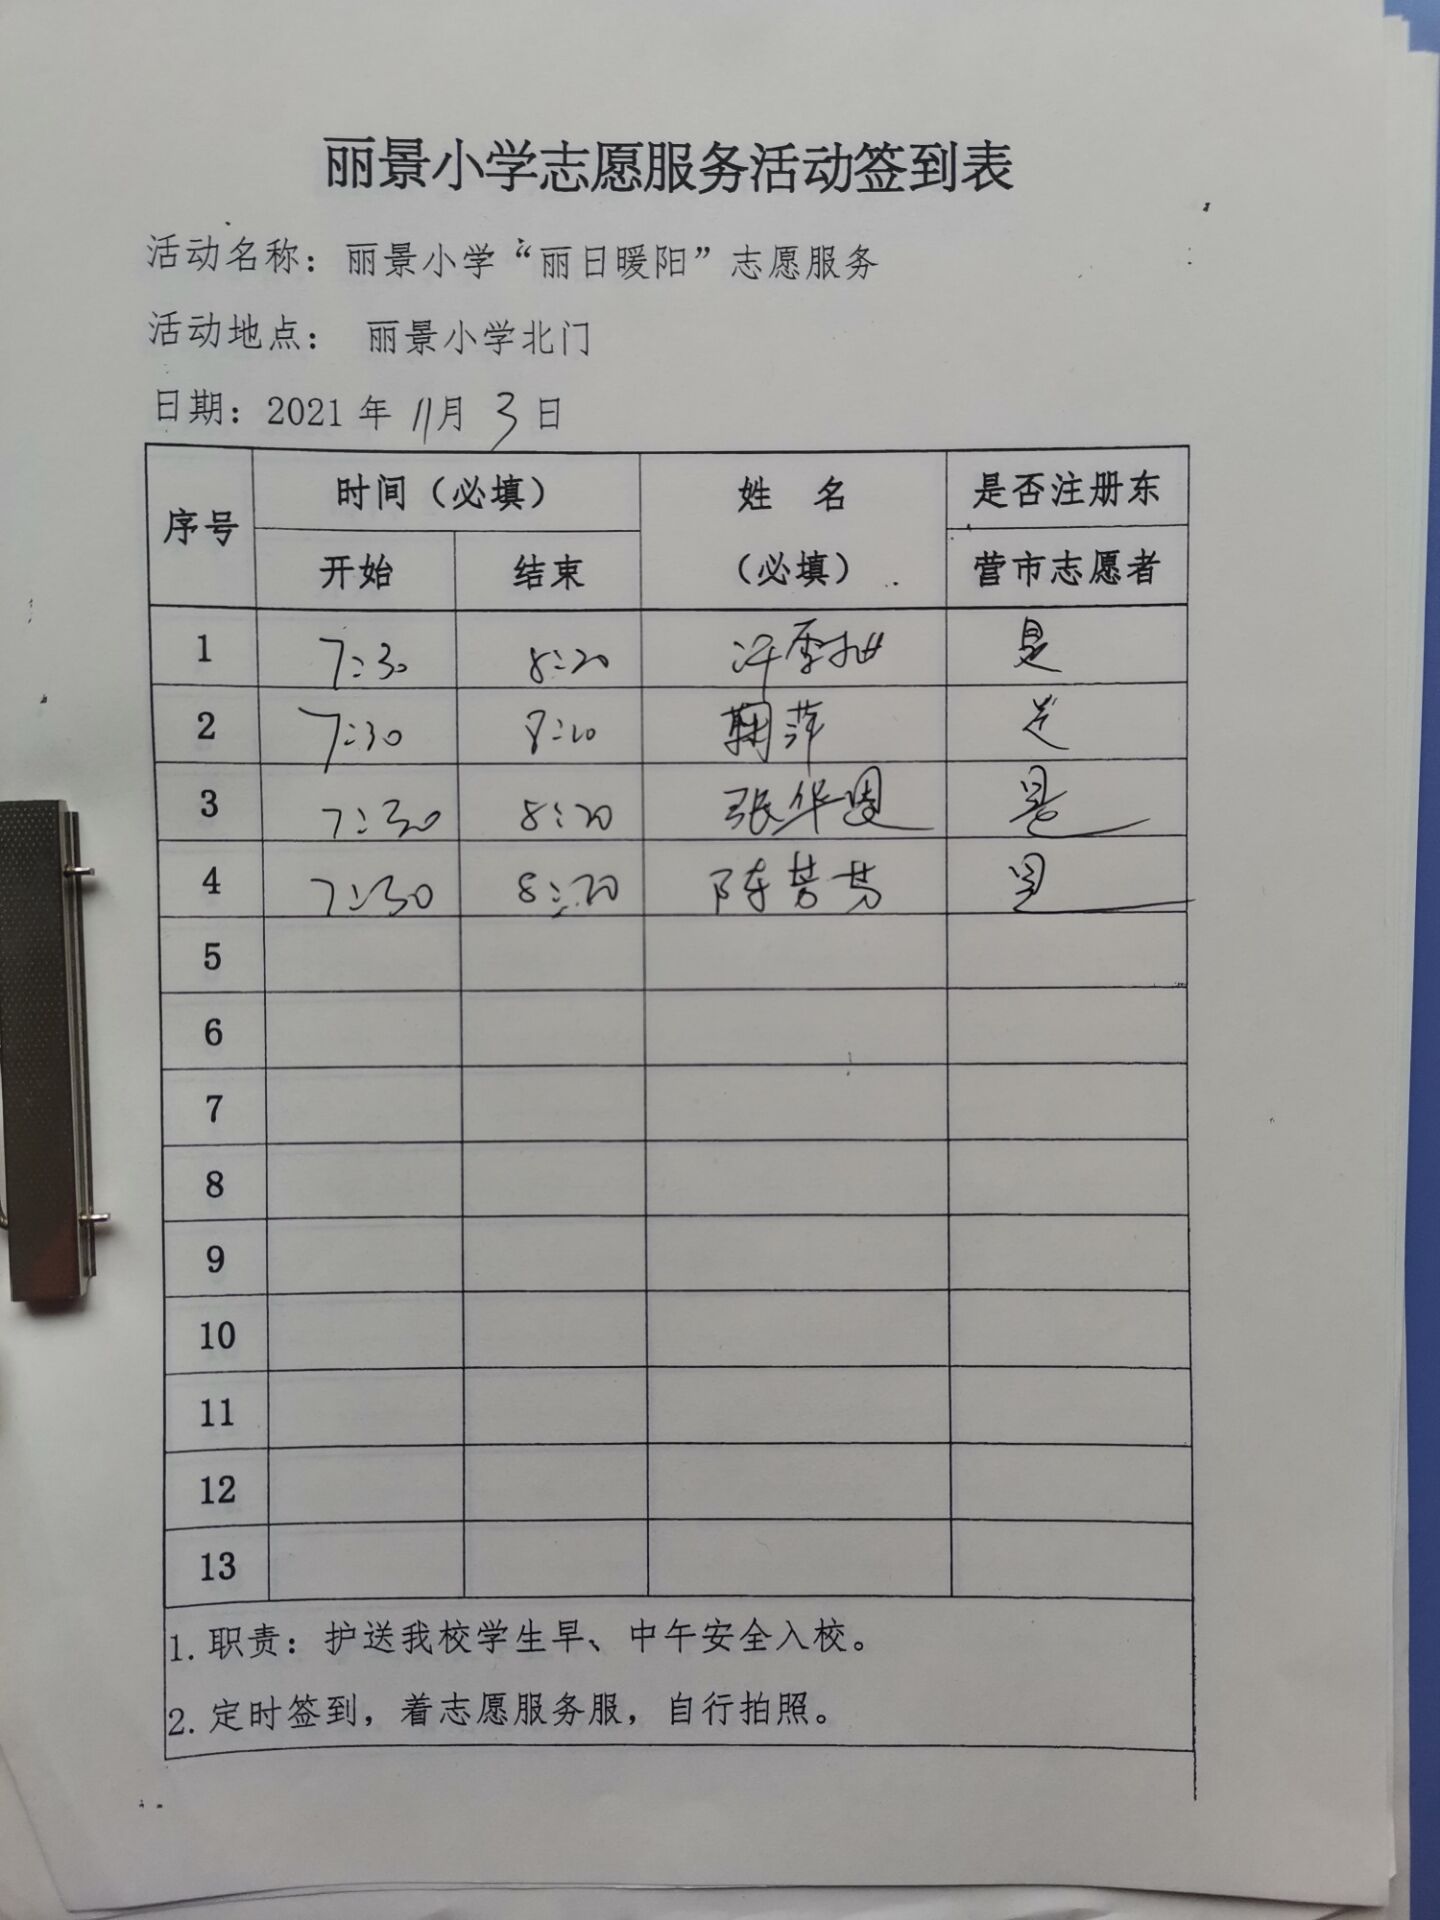 丽景小学志愿服务活动签到表
活动名称：丽景小学“丽日暖阳”志愿服务
活动地点： 丽景小学北门
日期：2021 年 11月 3日
序号 时间（必填） 姓 名 是否注册东
开始 结束 （必填） 营市志愿者
1 7:30 8:20 是
2 7:30 8:20 鞠萍 是
3 7:30 8:20 张华 是
4 7:30 8:20 陈芳芳 是
5
6
7
8
9
10
11
12
13
1.职责：护送我校学生早、中午安全入校。
2.定时签到，着志愿服务服，自行拍照。